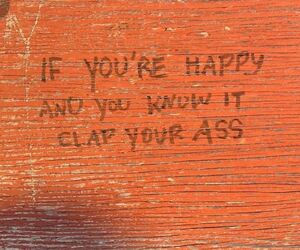 IF YOU'RE HAPPY
AND YOU KNOW IT
CLAP YOUR ASS